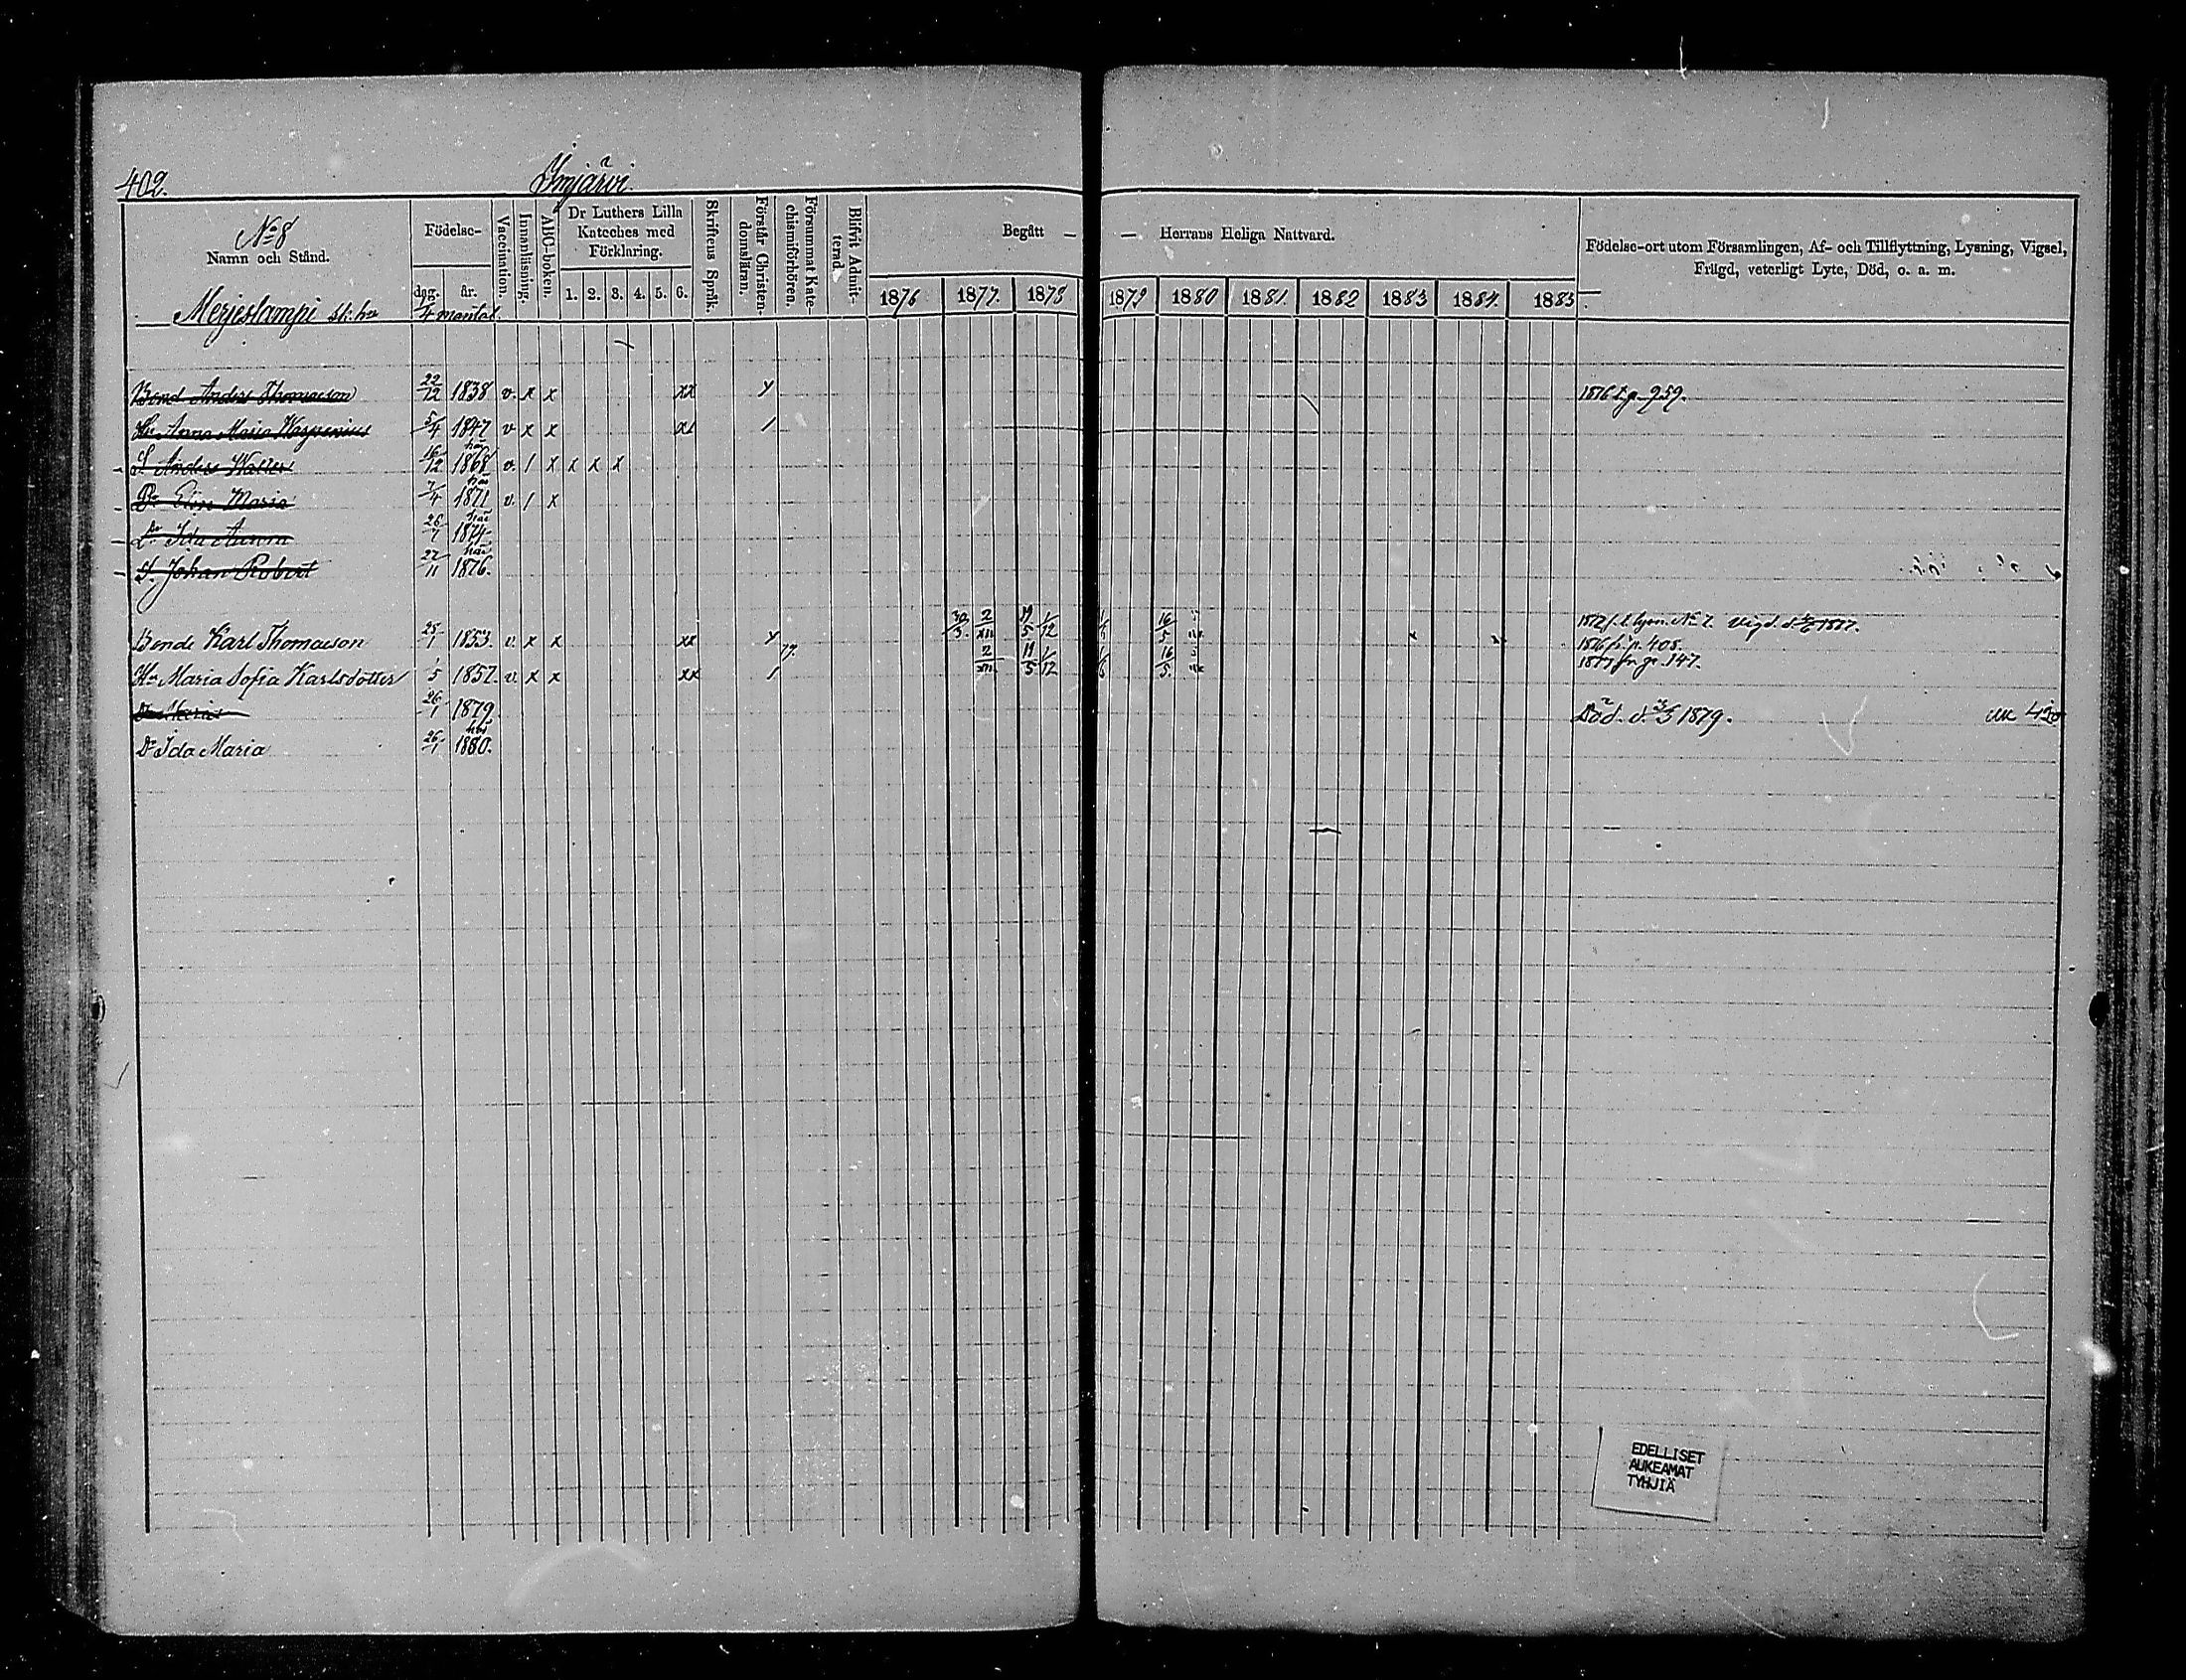 402. Imjärvi.
No 8
Namn och Stånd.
Födelse-
dag. år.
Vaccination.
Innanläsning.
ABC-boken.
Dr Luthers Lilla
Kateches med
Förklaring.
1. 2. 3. 4. 5. 6.
Skriftens Språk.
Förstår Christen-
domsläran.
Försummat Kate-
chismiförhören.
Blifvit Admit-
terad.
Begått — — Herrans Heliga Nattvard.
1876 1877. 1878 1879 1880 1881. 1882 1883 1884. 1885
Födelse-ort utom Församlingen, Af- och Tillflyttning, Lysning, Vigsel,
Frägd, veterligt Lyte, Död, o. a. m.
Merjeslampi sk: hn 1/4 mantal.
Bond Anders Thomasson 22/12 1838 v. x x xx 1876 p. 959.
Hu Anna Maria 5/4 1847 v x x
S. Anders Walter 16/12 1868 v. / x x x x
Dr Elin Maria 7/4 1871 v. / x
Dr Ida Anna 26/7 1874
S. Johan Robert 22/11 1876.
Bonde Karl Thomasson 25/1 1853. v. x x xx Vigd. 1877.
1876 fr. p. 408.
Hu Maria Sofia Karlsdotter 1/5 1857. v. x x xx 1877 fr p. 147.
26/1 1879 Död. d. 3/3 1879.
Dr Ida Maria 26/1 1880.
EDELLISET
AUKEAMAT
TYHJIÄ